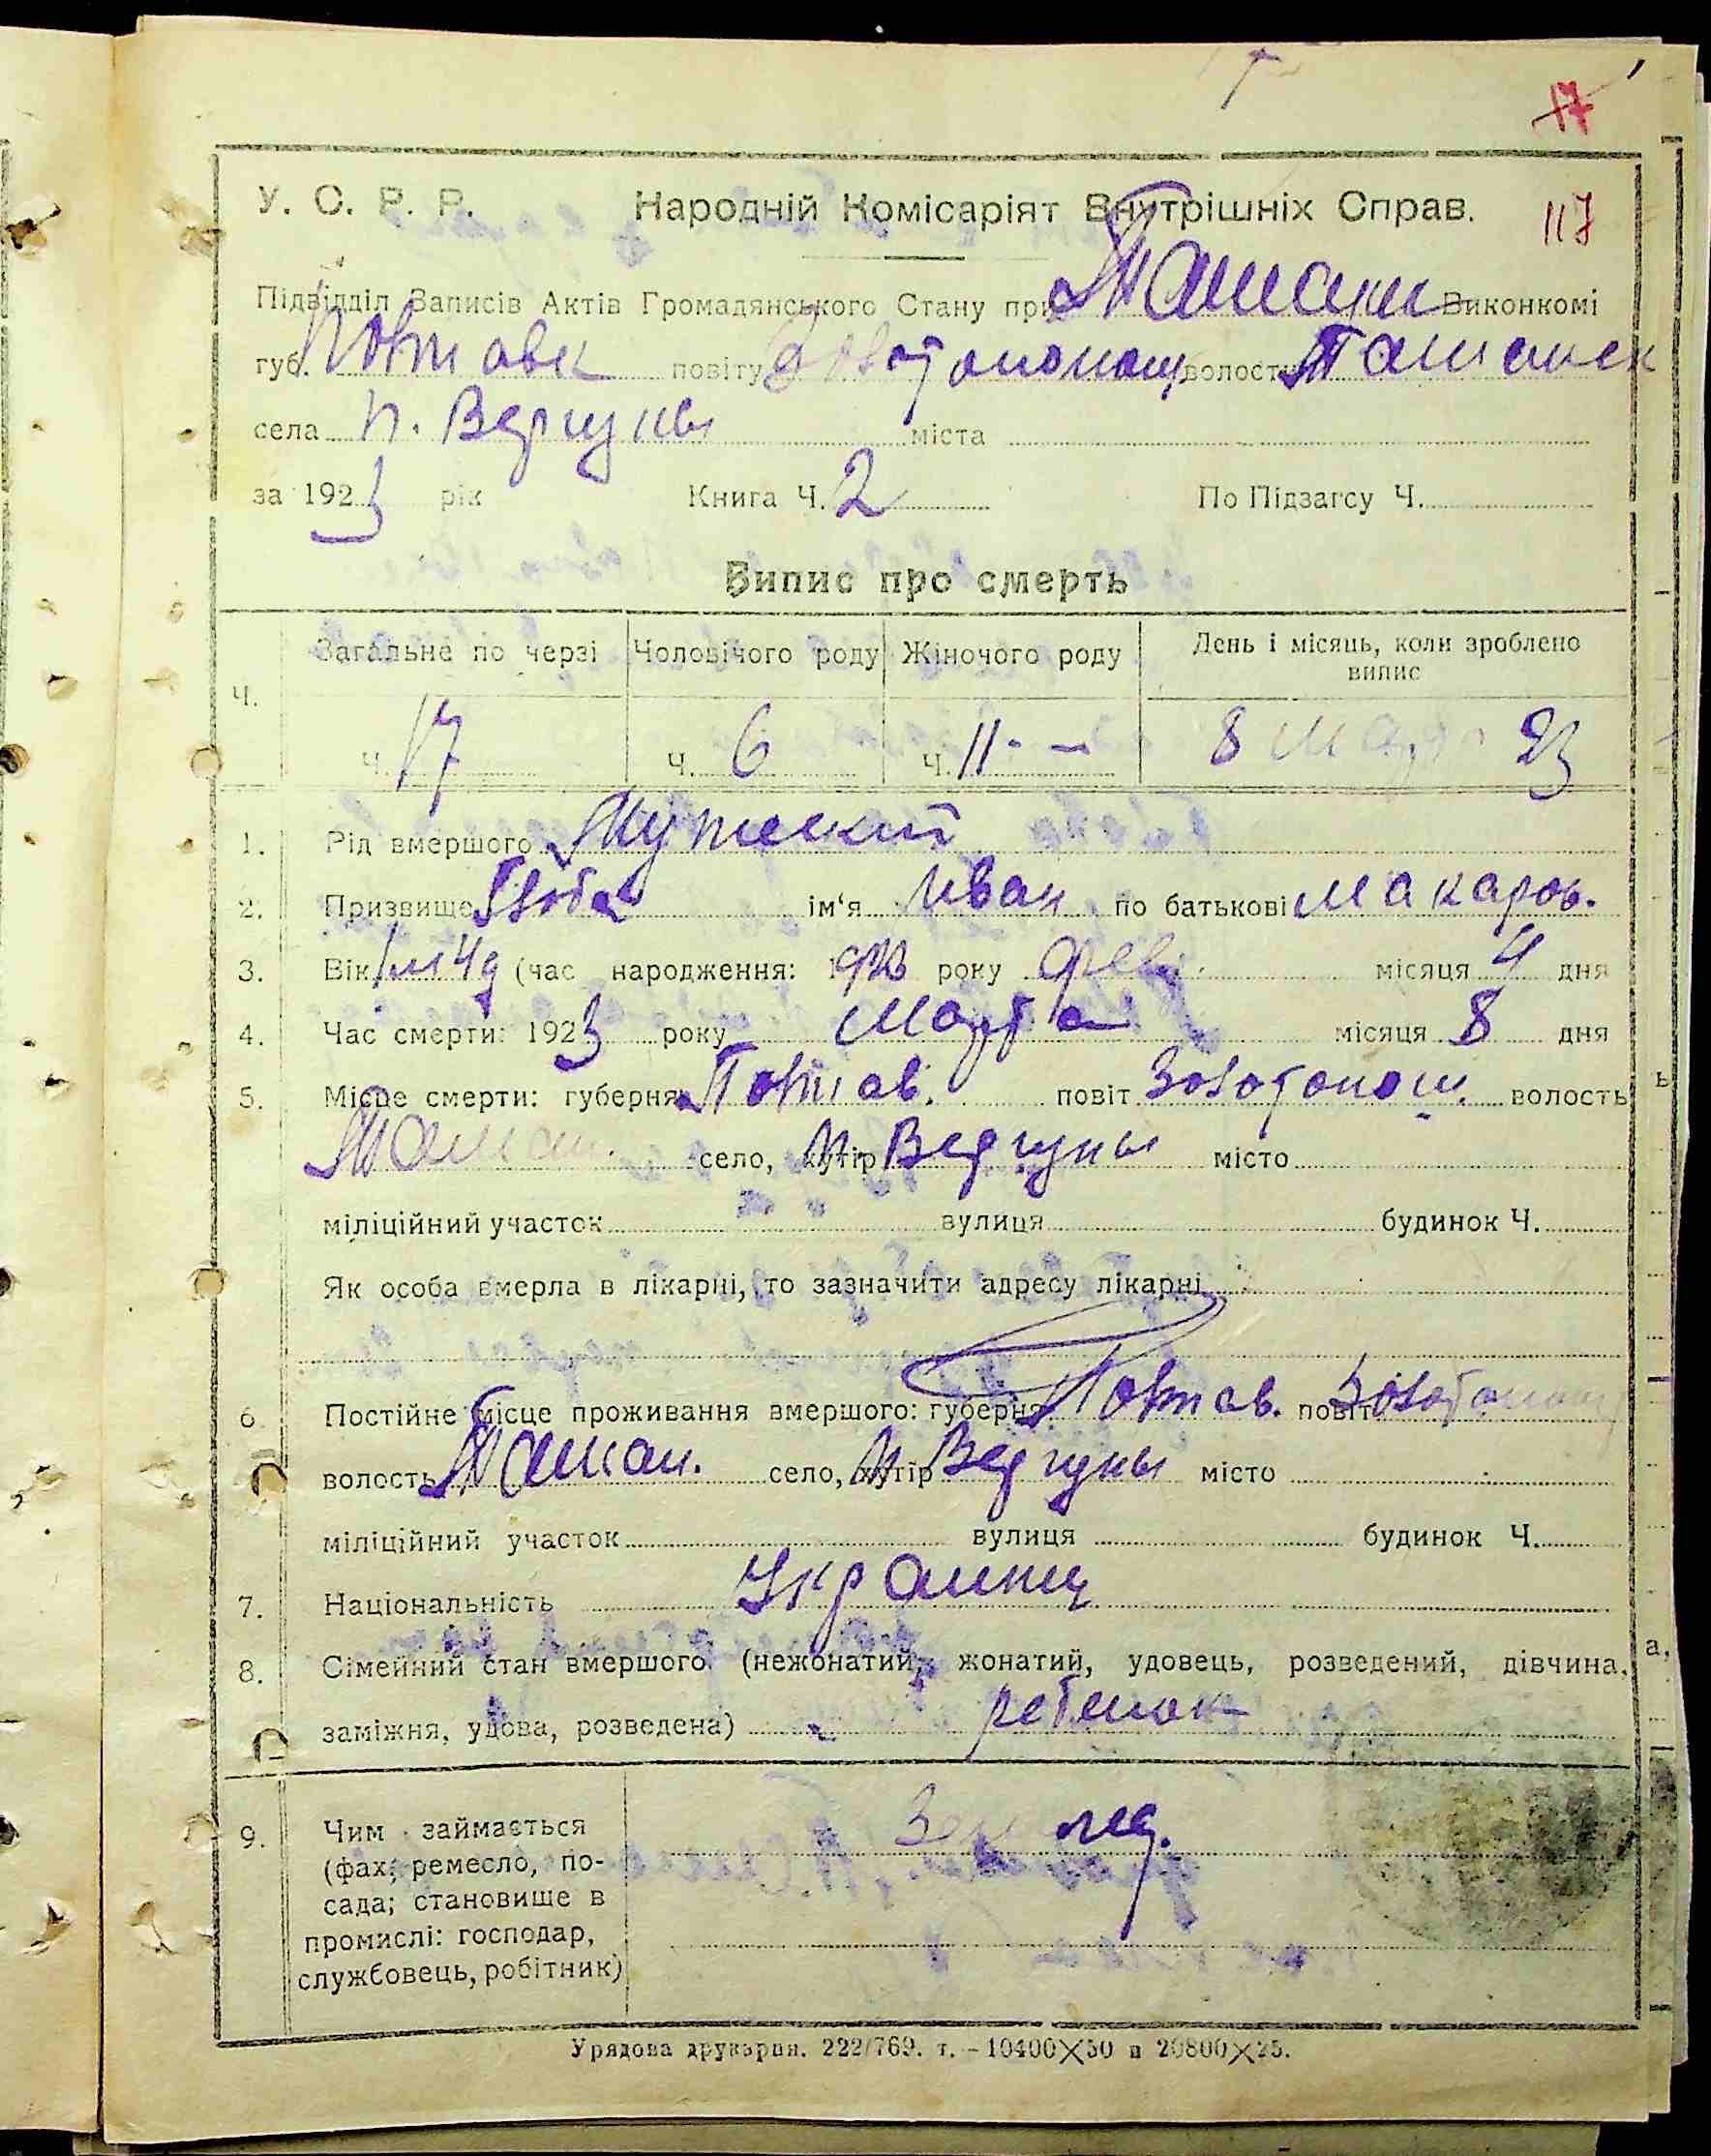 17
У. С. Р. Р. Народній Комісаріят Внутрішніх Справ. 117
Підвідділ Записів Актів Громадянського Стану при Ташан Виконкомі
губ. Полтавск повіту Золотоношск волости Ташанск
села п. Вергуны міста
за 1923 рік Книга Ч. 2 По Підзагсу Ч.
Випис про смерть
Ч. Загальне по черзі Чоловічого роду Жіночого роду День і місяць, коли зроблено
випис
Ч. 17 Ч. 6 Ч. 11 - - 8 Марта 23
1. Рід вмершого Мужеский
2. Призвище ім'я Иван по батькові Макаров.
3. Вік 1 м 4 д (час народження: 1923 року Февр. місяця 4 дня
4. Час смерти: 1923 року Марта місяця 8 дня
5. Місце смерти: губерня Полтав. повіт Золотонош. волость
Ташан. село, хутір п. Вергуны місто
міліційний участок вулиця будинок Ч.
Як особа вмерла в лікарні, то зазначити адресу лікарні
6. Постійне місце проживання вмершого: губерня Полтав. повіт Золотонош
волость Ташан. село, хутір п. Вергуны місто
міліційний участок вулиця будинок Ч.
7. Національність Украинец
8. Сімейний стан вмершого (нежонатий, жонатий, удовець, розведений, дівчина,
заміжня, удова, розведена) ребенок
9. Чим займається Землед.
(фах; ремесло, по-
сада; становище в
промислі: господар,
службовець, робітник)
Урядова друкарня. 222/769. т. - 10400×50 и 20800×25.